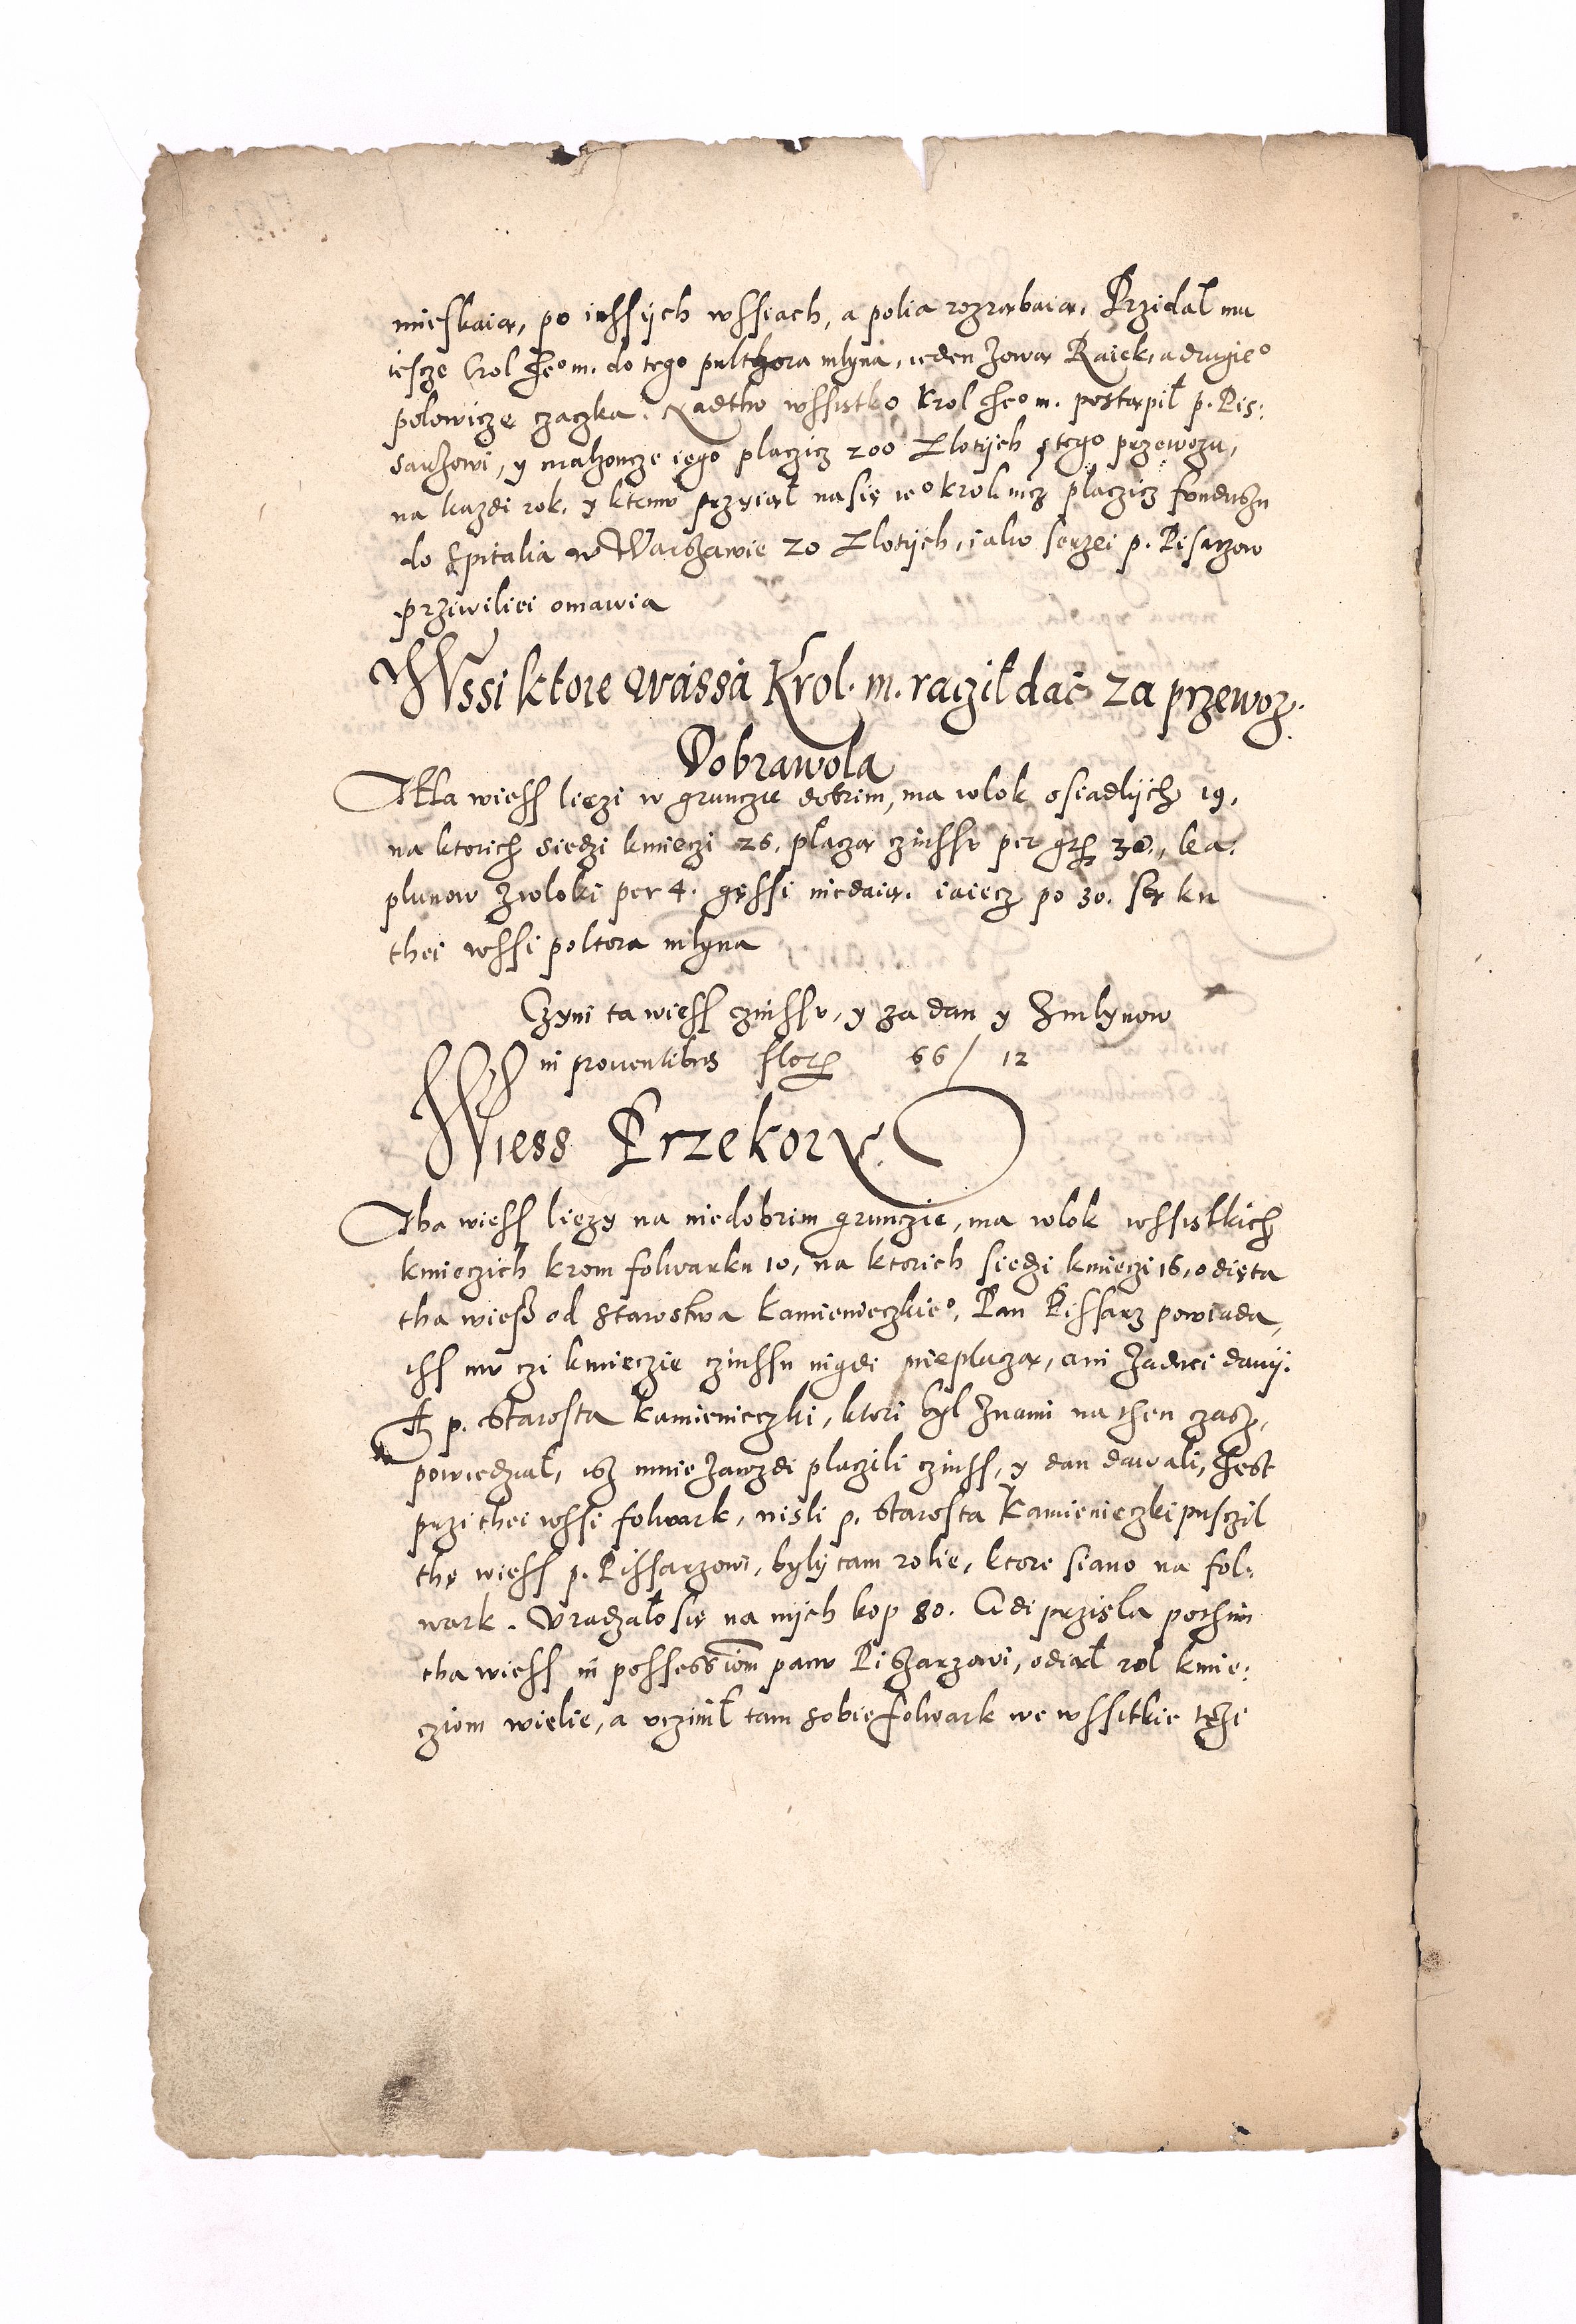 mieskaią, po inssÿch wssiach, a polia rozrąbaią. Przidal mu
iescze Crol Ieo m. do tego pulthora mlyna, ieden zową Raiek, a drugieo
polowicze czaczka. Nadtho wssistko Krol Ieo m. postąpil p. Pis:
sarzowi, y malzoncze iego placzicz 200 Zlotÿch s tego przewozu,
na kazdi rok, y ktemv przyiąl na się ieo krol mcz placzicz fundushu
do Spitalia w Warszawie 20 Zlotÿch, iako serzei p. Pisarzow
prziwiliei omawia
Wssi ktore wassa Krol. m. raczil dac za przewoz.
Dobrawola
Ttha wiess liezi w grunczie dobrim, ma wlok osiadlÿch 19,
na ktorich siedzi kmieczi 26. placzą czinssv per grs 38., ka:
plunow z wloki per 4. gęssi niedaią. iaiecz po 30. Są ku
thei wssi poltora mlyna
Czyni ta wiess czinssv, y za dan y z mlynow
in prouentibus flor 66 / 12
Wiess Przekory
Tha wiess liezy na niedobrim grunczie, ma wlok wssistkich
kmieczich krom folwarku 10, na ktorich siedzi kmieczi 16, odięta
tha wieß od Starostwa Kamienieczkieo, Pan Pissarz powiada,
iss mv czi kmieczie czinssu nigdi nieplaczą, ani zadnei danÿ.
A p. Starosta Kamienieczki, ktori byl z nami na then czasz,
powiedzial, isz mnie zawzdi placzili czinss, y dan dawali, Iest
przi thei wssi folwark, nisli p. Starosta Kamienieczki pusczil
thę wiess p. Pissarzowi, bylÿ tam rolie, ktore siano na fol:
wark. Vradzalo się na nÿch kop 80. Gdi przisla pothim
tha wiess in possessionem panv Piszarzowi, odiąl rol kmie:
cziom wielie, a vczinil tam sobie folwark we wssitkie trzi